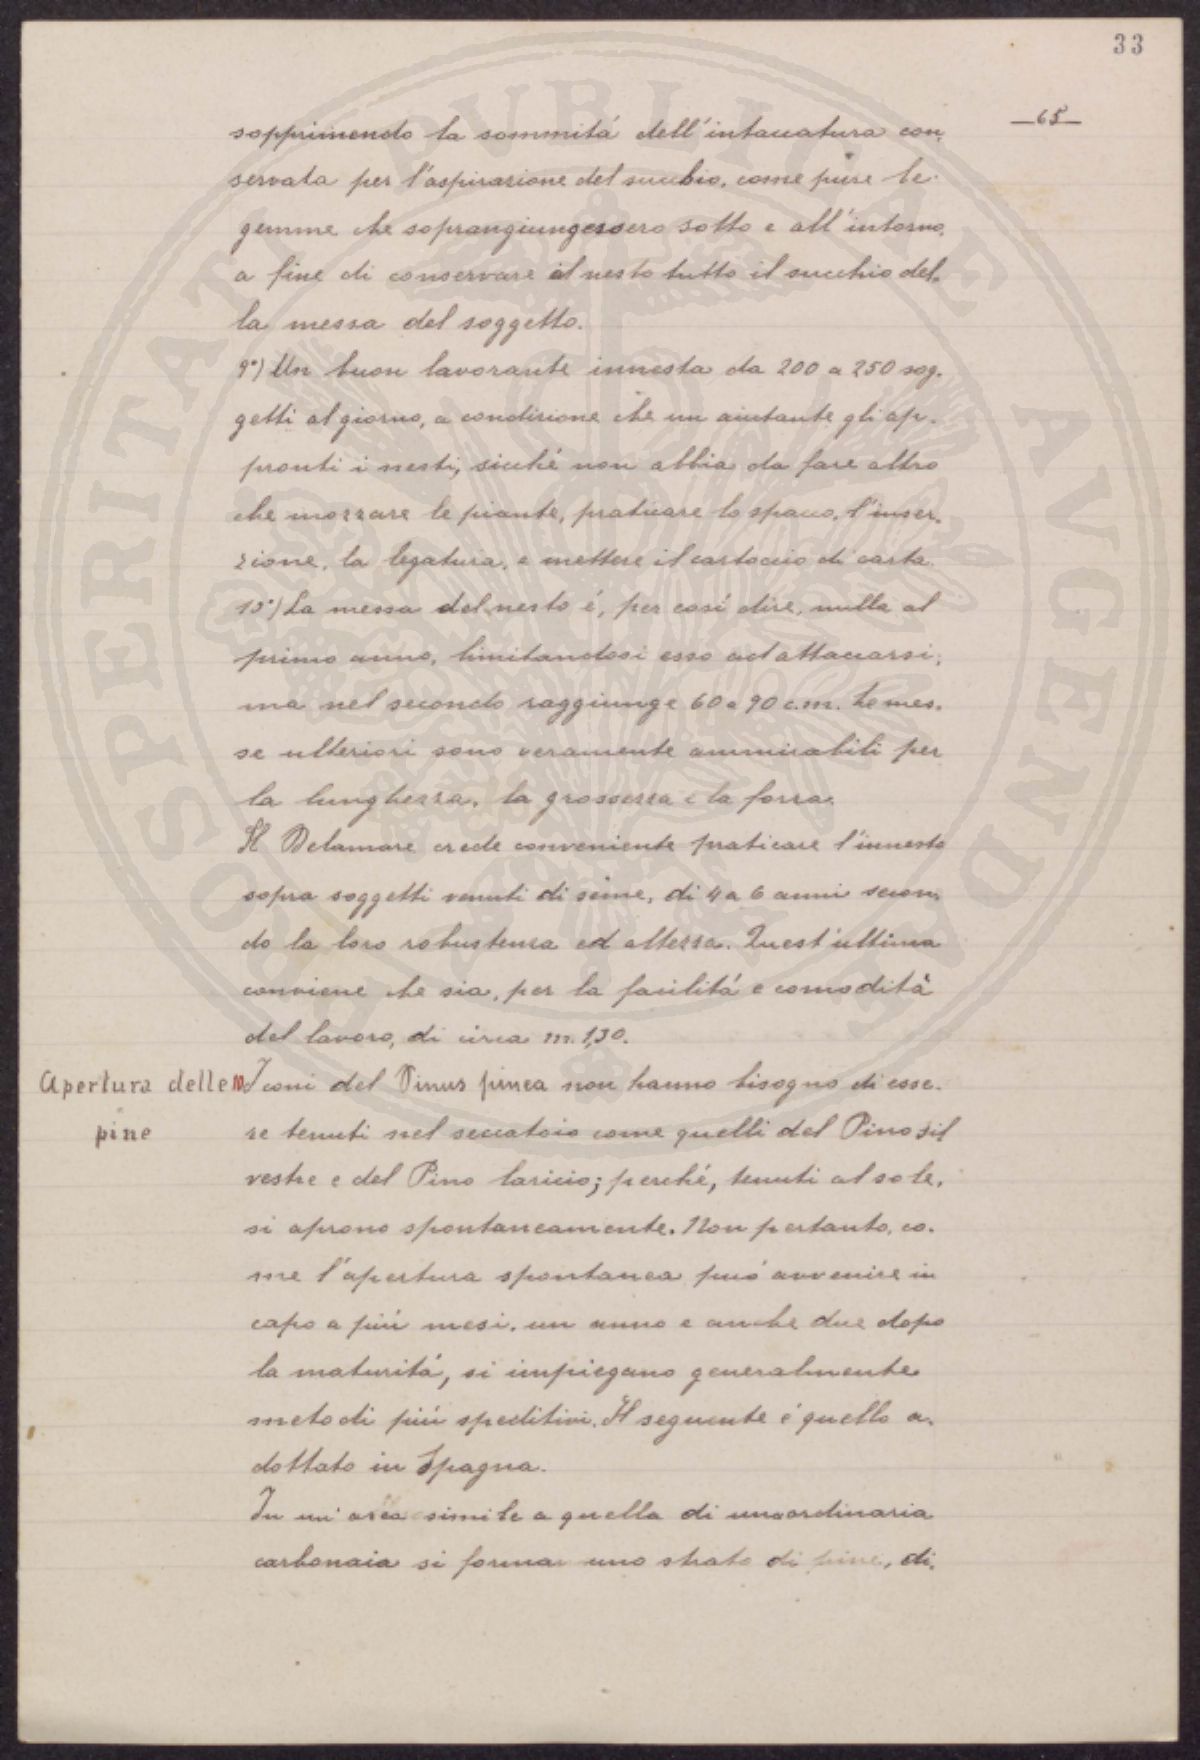 33
—65—
sopprimendo la sommitá dell'intaccatura con.
servata per l'aspirazione del succhio, come pure le
gemme che soprangiungessero sotto e all'intorno,
a fine di conservare al nesto tutto il succhio del.
la messa del soggetto.
9°) Un buon lavorante innesta da 200 a 250 sog.
getti al giorno, a condizione che un aiutante gli ap.
pronti i nesti, sicché non abbia da fare altro
che mozzare le piante, praticare lo spacco, l'inser.
zione, la legatura, e mettere il cartoccio di carta.
10°) La messa del nesto é, per cosí dire, nulla al
primo anno, limitandosi esso ad attaccarsi;
ma nel secondo raggiunge 60 a 90 c.m. Le mes.
se ulteriori sono veramente ammirabili per
la lunghezza, la grossezza e la forza.
Il Delamare crede conveniente praticare l'innesto
sopra soggetti venuti di seme, di 4 a 6 anni secon.
do la loro robustezza ed altezza. Quest'ultima
conviene che sia, per la facilitá e comoditá
del lavoro, di circa m. 1,30.
Apertura delle pine
10 I coni del Pinus pinea non hanno bisogno di esse.
re tenuti nel seccatoio come quelli del Pino sil
vestre e del Pino laricio; perché, tenuti al sole,
si aprono spontaneamente. Non pertanto, co.
me l'apertura spontanea puó avvenire in
capo a piú mesi, un anno e anche due dopo
la maturitá, si impiegano generalmente
metodi piú speditivi. Il seguente é quello a.
dottato in Spagna.
In un'area simile a quella di una ordinaria
carbonaia si forma uno strato di pine, di.